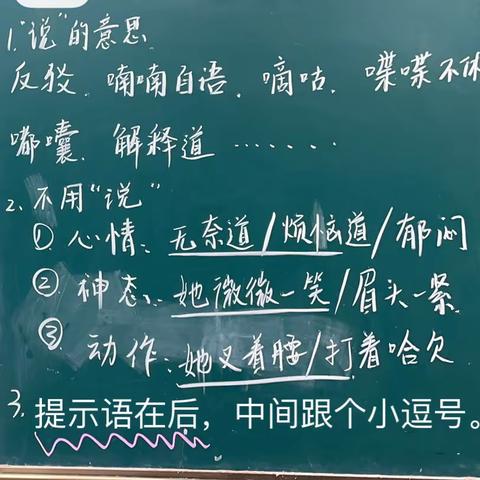 1."说"的意思
反驳、喃喃自语、嘀咕、喋喋不休
嘟囔、解释道……
2、不用"说"
① 心情：无奈道/烦恼道/郁闷
② 神态：她微微一笑/眉头一紧
③ 动作：她叉着腰/打着哈欠
3.提示语在后，中间跟个小逗号。